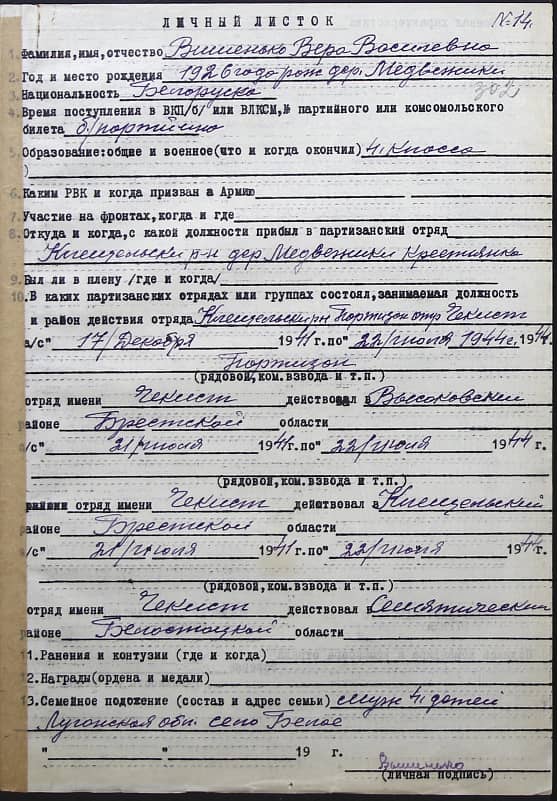 ЛИЧНЫЙ ЛИСТОК №14.
1. Фамилия, имя, отчество Вишенько Вера Василевна
2. Год и место рождения 1926 года рож дер. Медвежики
3. Национальность Белоруска 302
4. Время поступления в ВКП/б/ или ВЛКСМ,№ партийного или комсомольского
билета б/портийно
5. Образование:общие и военное(что и когда окончил) 4 класса
)
6. Каким РВК и когда призван в Армию
7. Участие на фронтах,когда и где
8. Откуда и когда,с какой должности прибыл в партизанский отряд
р-н дер. Медвежики Крестиянка
9. Был ли в плену /где и когда/
10. В каких партизанских отрядах или группах состоял,занимаемая должность
и район действия отряда рн Портизон отр Чекист
а/с" 17/Декобря 1941 г.по" 22/июля 1944г. 194 г.
Портизон
(рядовой,ком.взвода и т.п.)
отряд имени Чекист действовал в Высоковский
районе Брестской области
а/с" 21/июля 1941 г.по" 22/июля 1944 г.
(рядовой,ком.взвода и т.п.)
отряд имени Чекист действовал в
районе Брестской области
а/с" 21/июля 1941 г.по" 22/июля 1944 г.
(рядовой,ком.взвода и т.п.)
отряд имени Чекист действовал в Семятический
районе Белостоцкой области
11. Ранения и контузии (где и когда)
12. Награды(ордена и медали)
13. Семейное подожение (состав и адрес семьи) муж 4 детей
Лугонская обл. село Белое
" " 19 г.
Вишенько
(личная подпись)